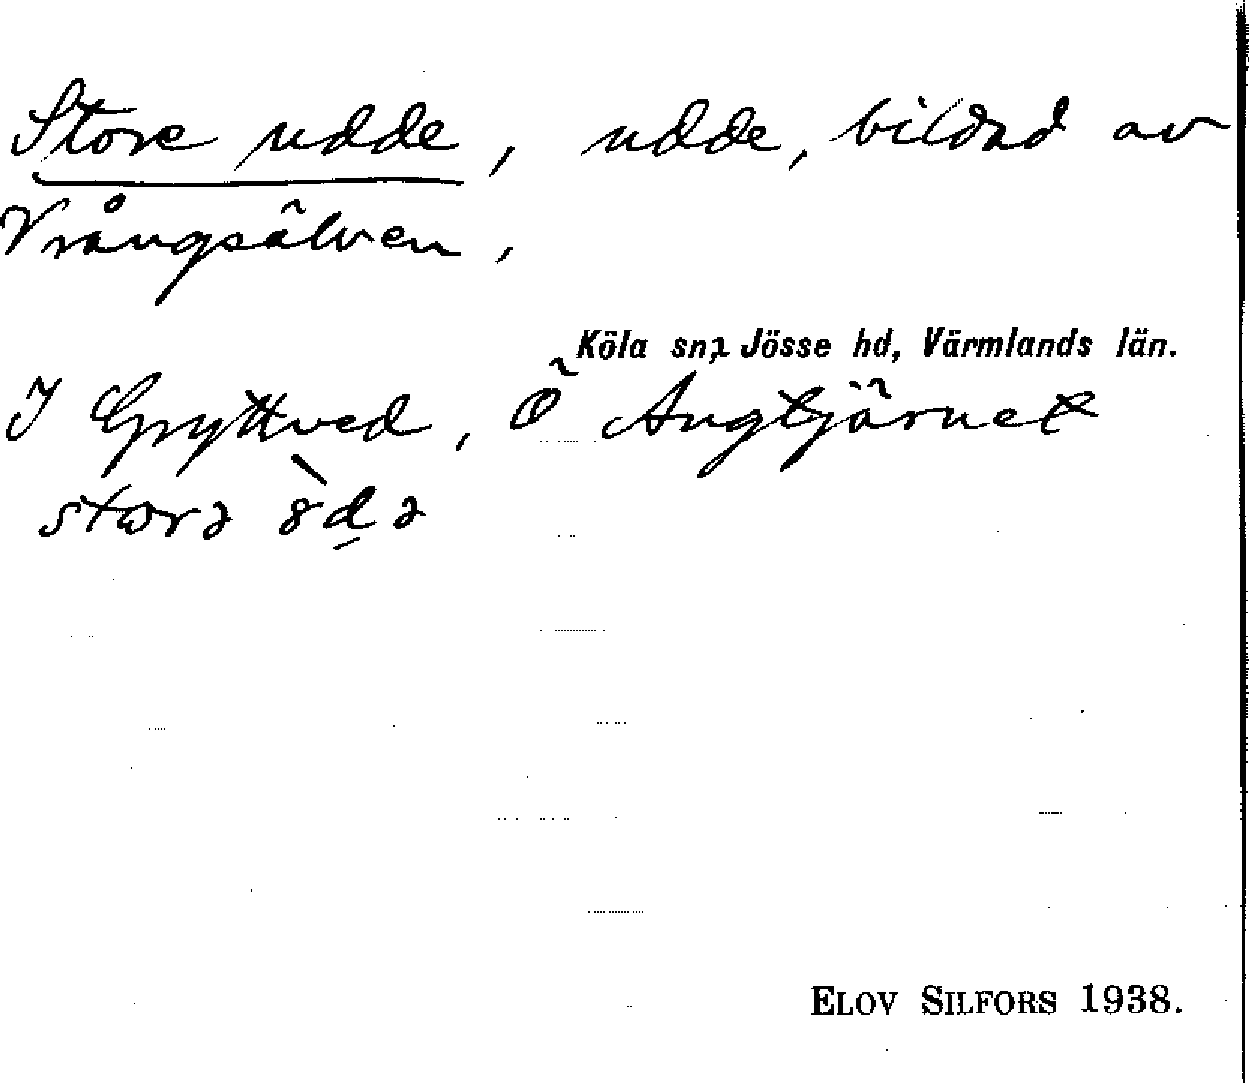 Store udde, udde, bildad av
Vrångsälven,
Köla sn, Jösse hd, Värmlands län.
I Gryttved, Ö Ängtjärnet
stωrə 
ELOV SILFORS 1938.